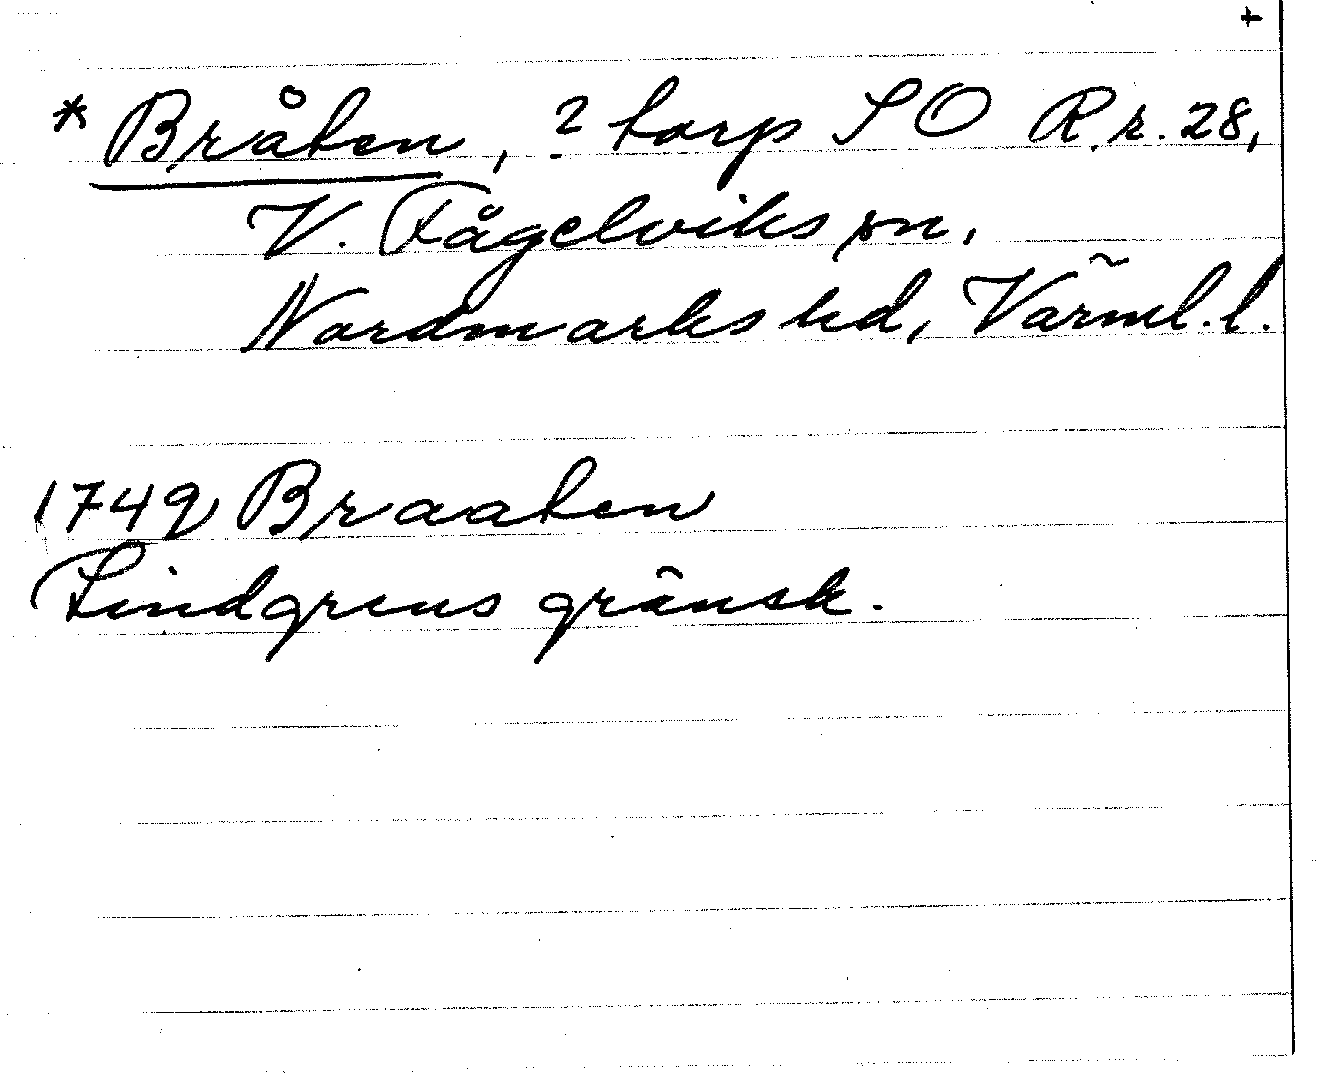 +
* Bråten, ? torp SO R.r. 28,
V. Fågelviks sn,
Nordmarks hd, Värml. l.
1749 Braaten
Lindgrens gränsk.